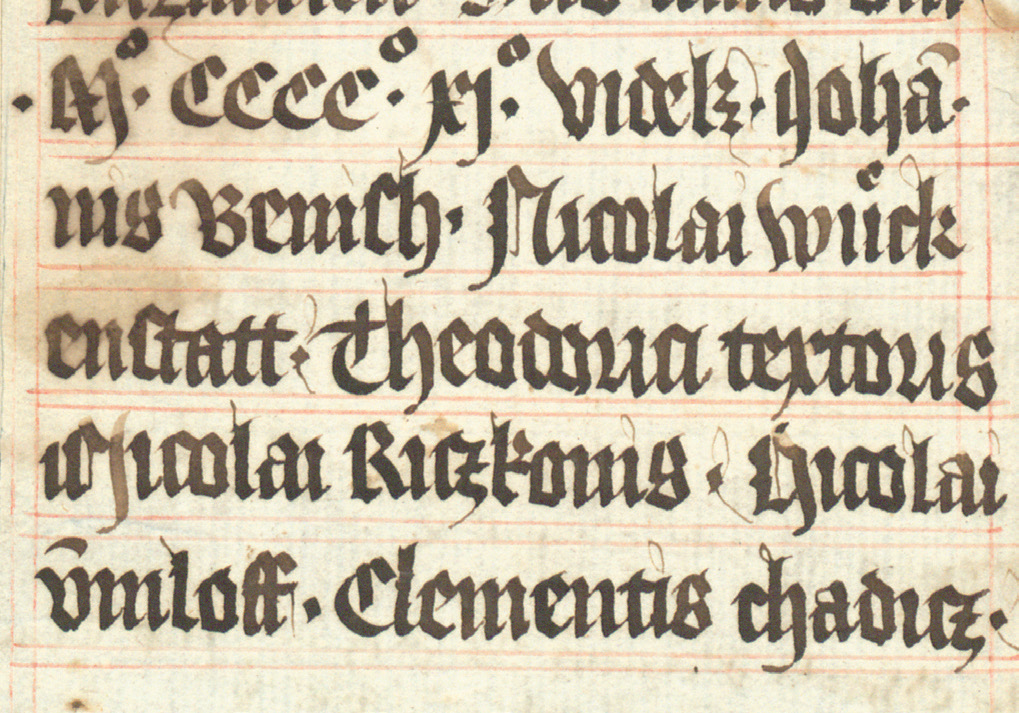 · Mº · CCCCº · xjº · videlꝫ · Johā·
nis Benisch · Nicolai wuͤck
enstatt · Theodorici textoris
Nicolai Riczkonis · Nicolai
v̄miloff · Clementis chadicz ·